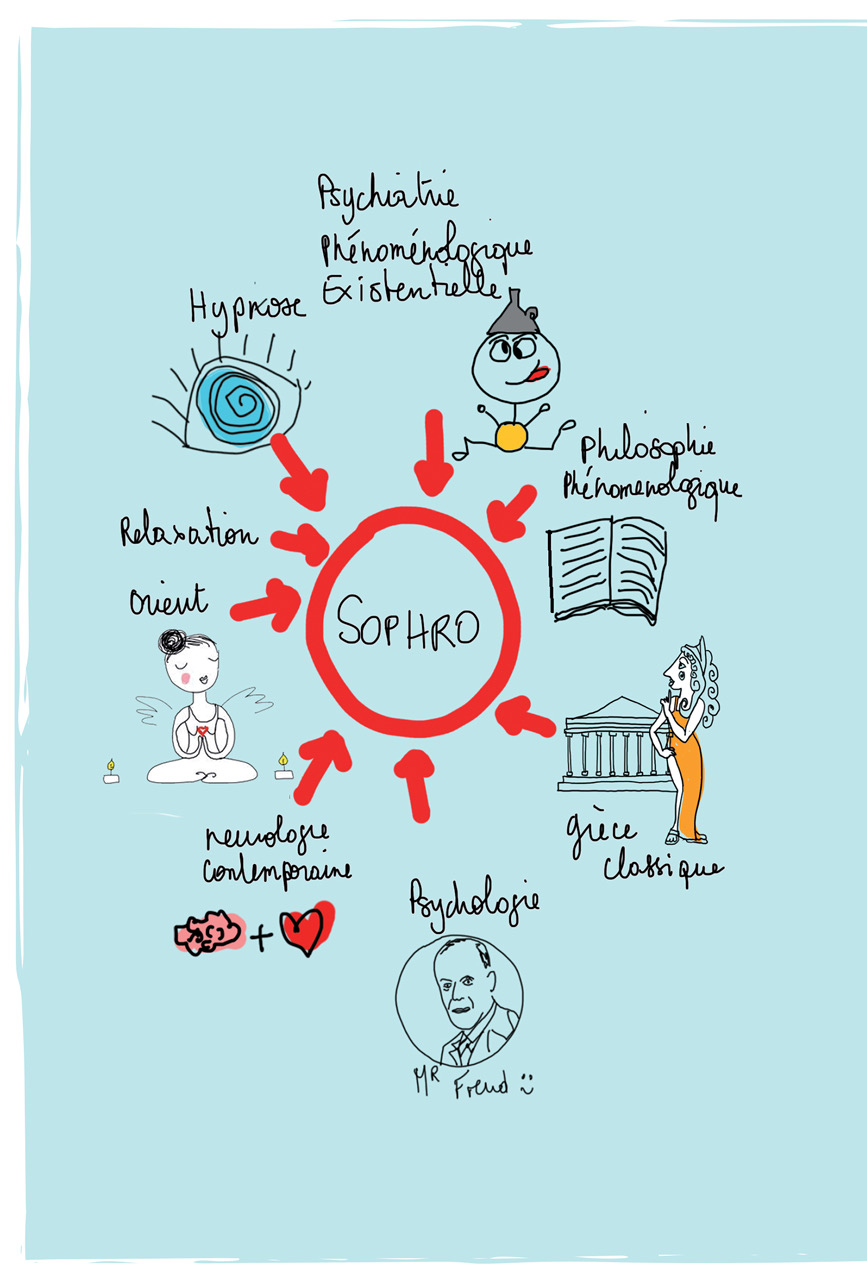 Psychiatrie
Phénoménologique
Existentielle
Hypnose
Philosophie
Phénomenologique
Relaxation
Orient
SOPHRO
neurologie
contemporaine
grèce
classique
Psychologie
MR Freud :)